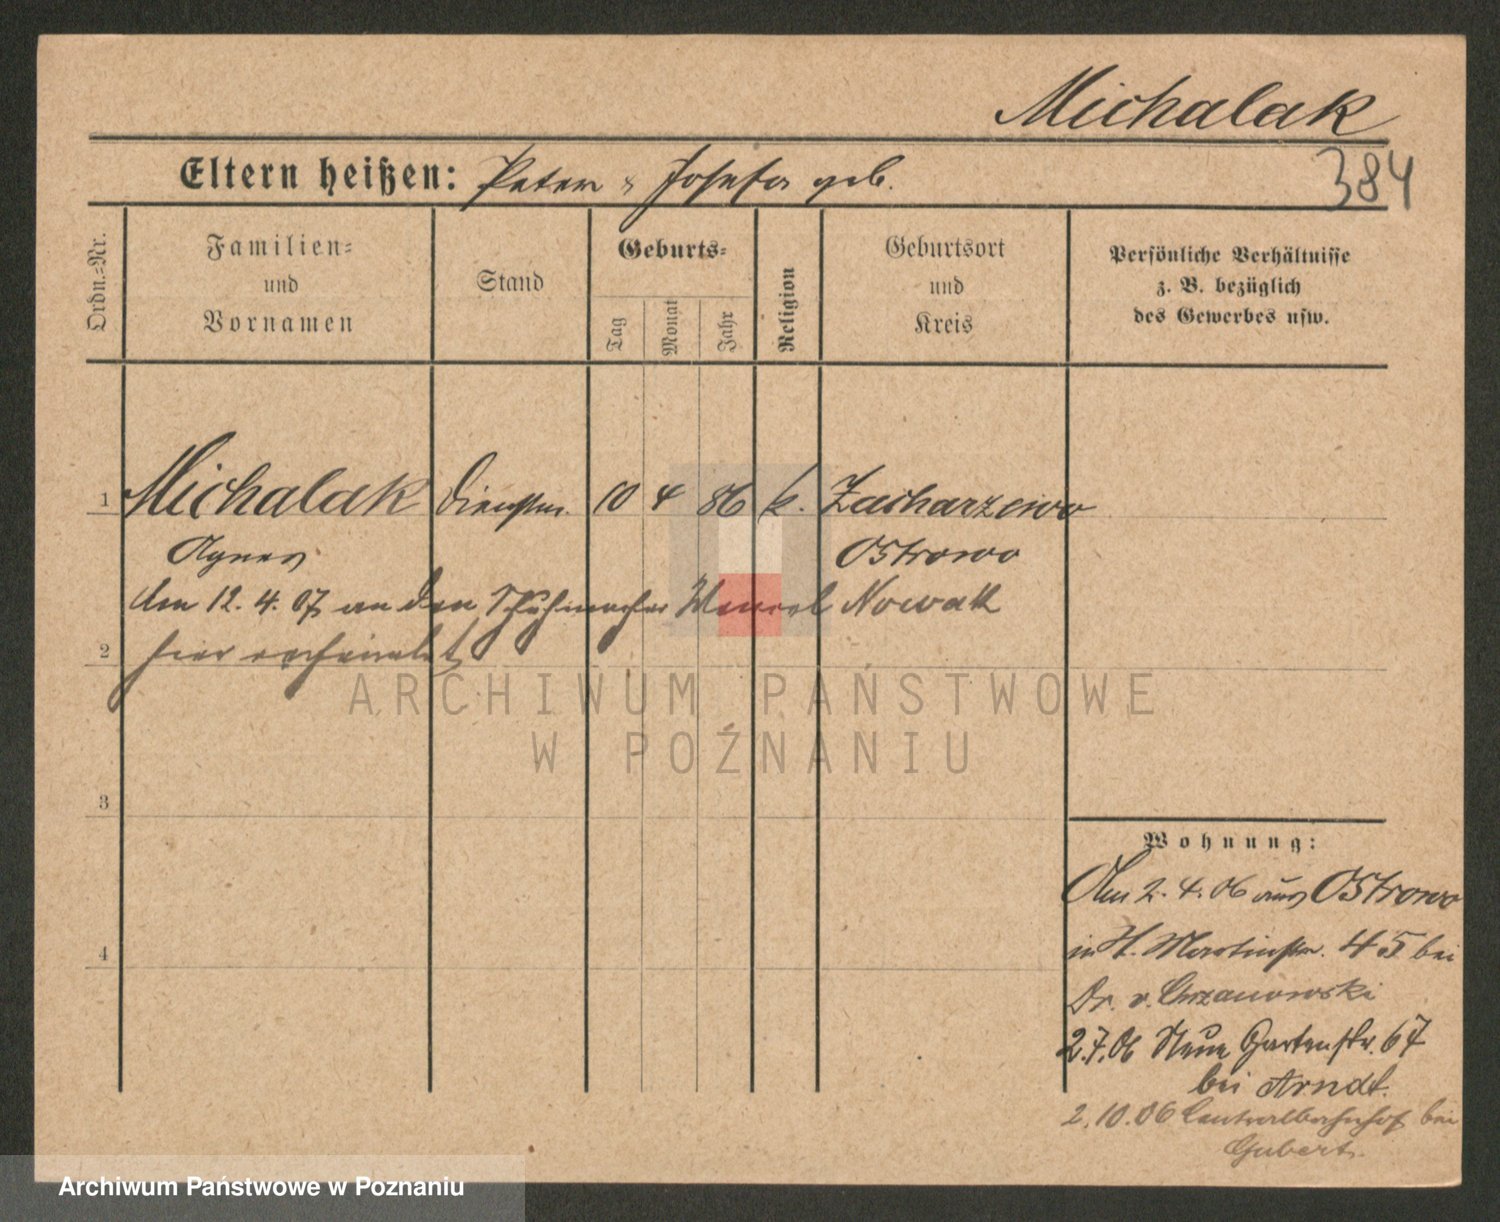 Michalak
384
Eltern heißen: Peter & Josefa geb.
Ordn.=Nr.
Familien=
und
Vornamen
Stand
Geburts=
Tag
Monat
Jahr
Religion
Geburtsort
und
Kreis
Persönliche Verhältnisse
z. B. bezüglich
des Gewerbes usw.
1 Michalak Dienstm. 10 4 86 k. Zacharzewo
Agnes Ostrowo
den 12. 4. 07 an den Schuhmacher Nowak
2 hier verheiratet
3
4
Wohnung:
Am 2. 4. 06 aus Ostrowo
in St. Martinstr. 45 bei
Dr. v. Chrzanowski
2.7.06 Neue Gartenstr. 67
bei Arndt.
2.10.06 Centralbahnhof bei
Gubert.
ARCHIWUM PAŃSTWOWE
W POZNANIU
Archiwum Państwowe w Poznaniu